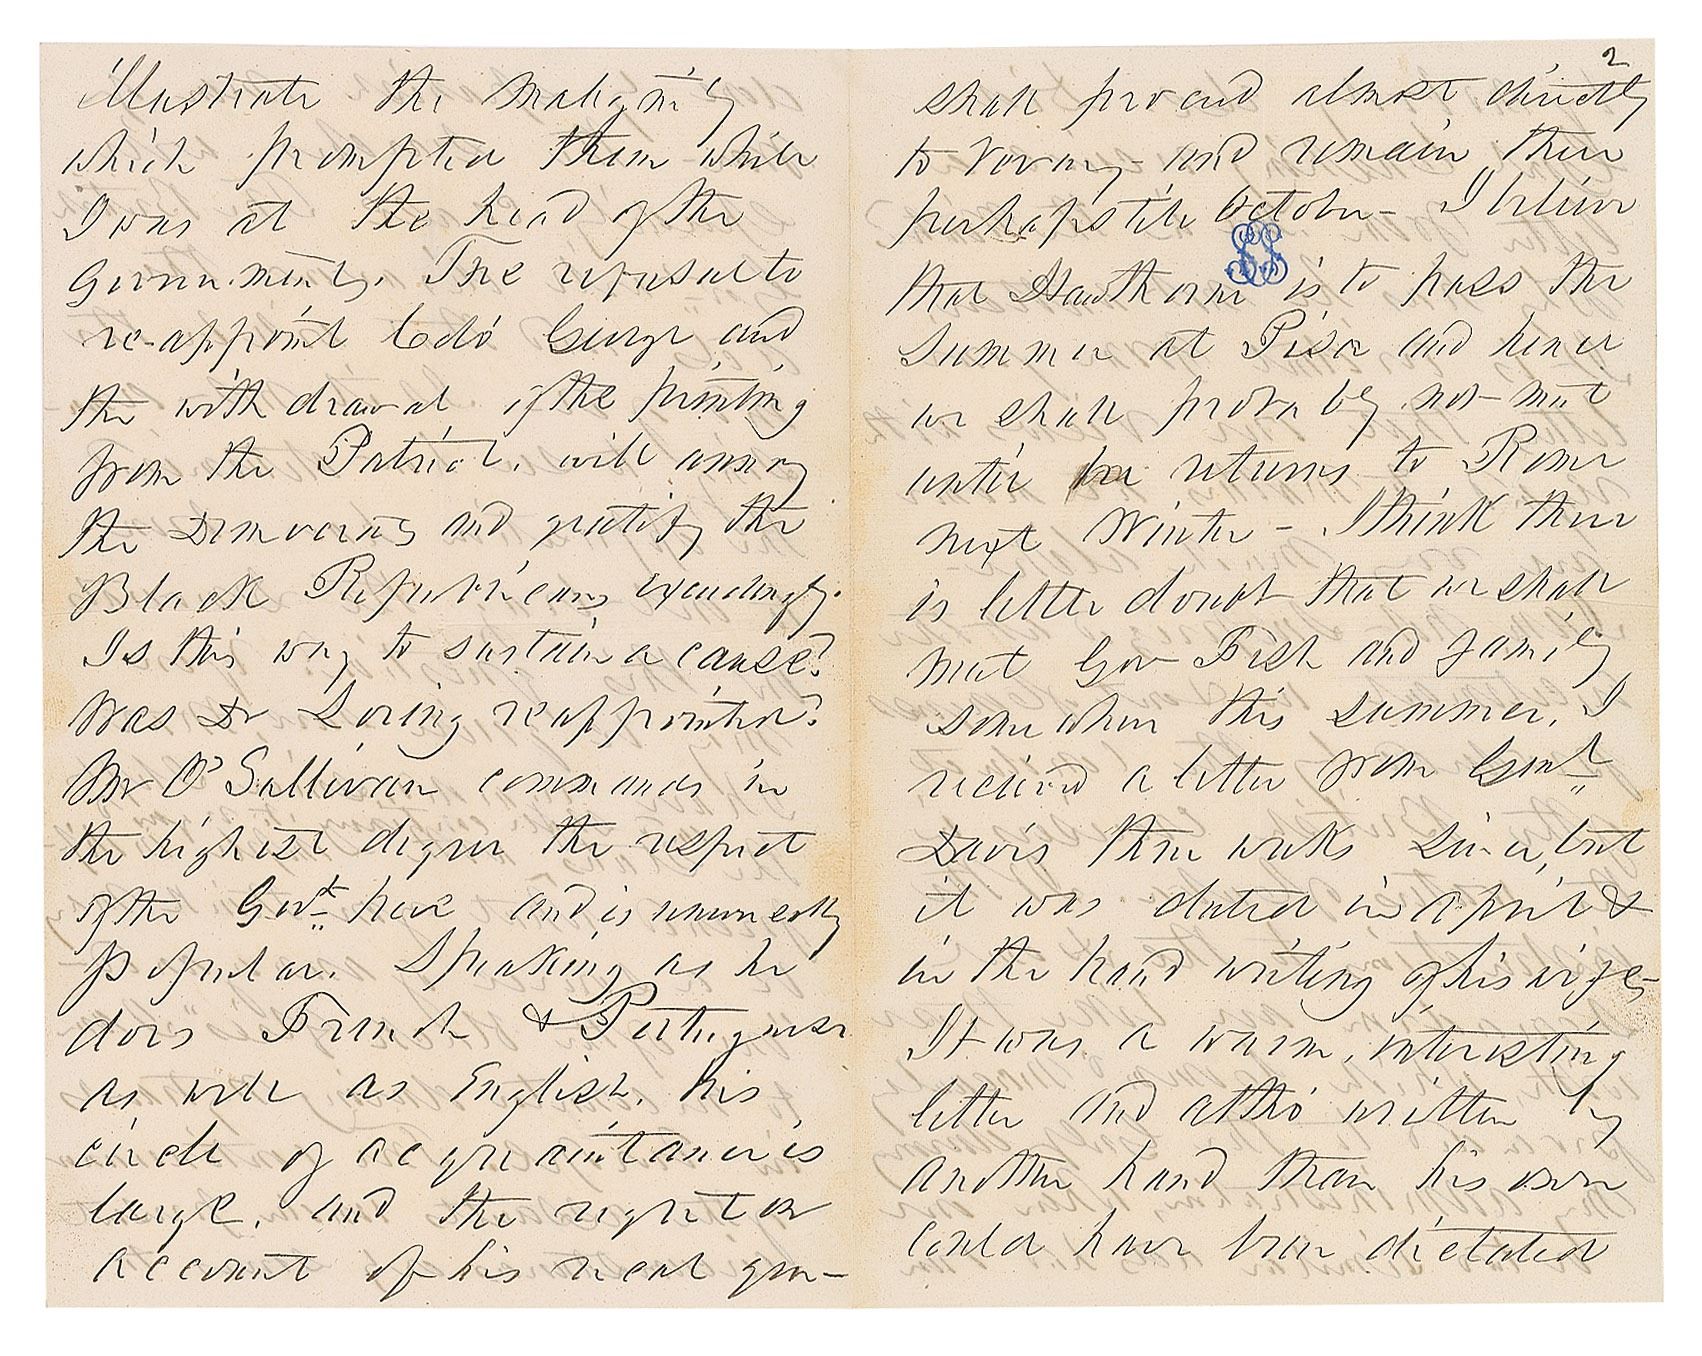 illustrate the malignity
which prompted them while
I was at the head of the
Government. The refusal to
re-appoint Colo George and
the withdrawal of the printing
from the Patriot, will annoy
the Democrats and gratify the
Black Republicans exceedingly.
Is this way to sustain a cause?
Was Dr Loring reappointed?
Mr O'Sullivan commands in
the highest degree the respect
of the Govt here and is
popular. Speaking as he
does French & Portuguese
as well as English, his
circle of acquaintance is
large, and the regret on
account of his
2
shall proceed almost directly
to Vevay - and remain there
perhaps till October - I believe
that Hawthorne is to pass the
Summer at Pisa and hence
we shall probably not meet
until he returns to Rome
next Winter - I think there
is little doubt that we shall
meet Gov Fish and family
somewhere this summer. I
received a letter from Genl
Davis three weeks since, but
it was dated in April &
in the hand writing of his wife -
It was a warm, interesting
letter and altho' written by
another hand than his own
could have been dictated